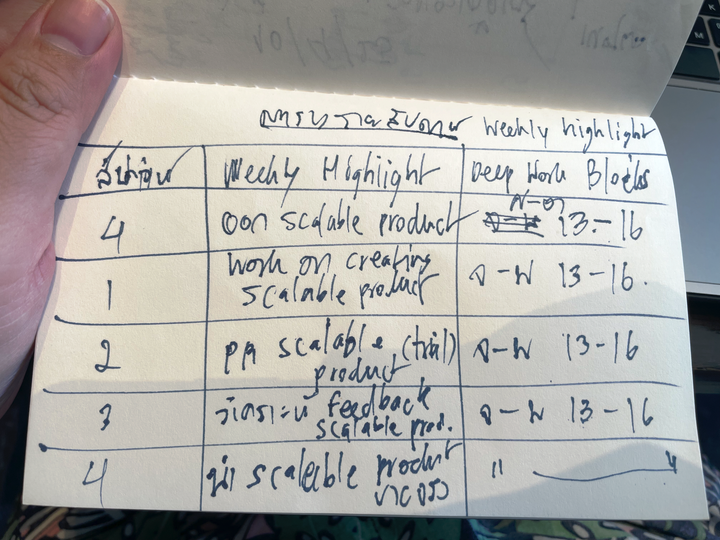 ตารางรายสัปดาห์ Weekly highlight
สัปดาห์ Weekly Highlight Deep Work Blocks
4 ออก scalable product 13.-16
1 Work on creating scalable product จ-พ 13-16.
2 scalable (trial) product จ-พ 13-16
3 วิเคราะห์ feedback scalable prod. จ-พ 13-16
4 นำ scaleable product ขายจริง " "